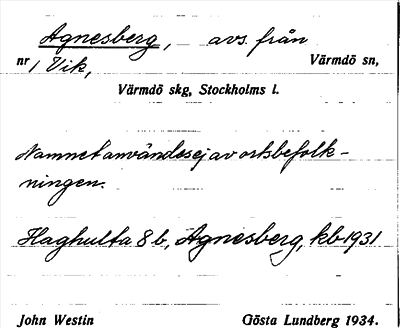 Agnesberg, avs. från
nr 1 Vik, Värmdö sn,
Värmdö skg, Stockholms l.
Namnet användes ej av ortsbefolk-
ningen.
Haghulta 8b, Agnesberg, kb 1931
John Westin Gösta Lundberg 1934.